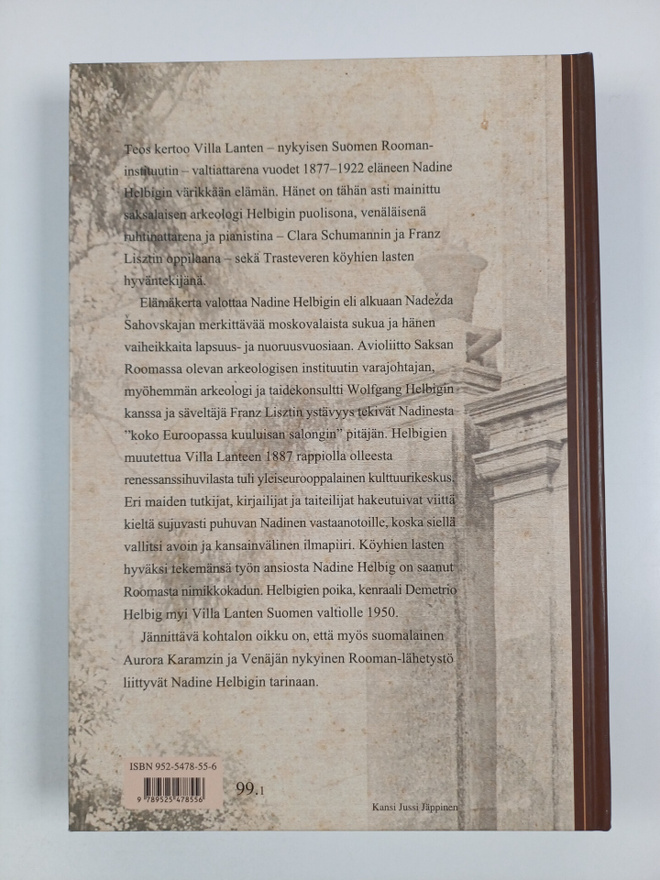 Teos kertoo Villa Lanten – nykyisen Suomen Rooman-
instituutin – valtiattarena vuodet 1877–1922 eläneen Nadine
Helbigin värikkään elämän. Hänet on tähän asti mainittu
saksalaisen arkeologi Helbigin puolisona, venäläisenä
ruhtinattarena ja pianistina – Clara Schumannin ja Franz
Lisztin oppilaana – sekä Trasteveren köyhien lasten
hyväntekijänä.
Elämäkerta valottaa Nadine Helbigin eli alkuaan Nadežda
Šahovskajan merkittävää moskovalaista sukua ja hänen
vaiheikkaita lapsuus- ja nuoruusvuosiaan. Avioliitto Saksan
Roomassa olevan arkeologisen instituutin varajohtajan,
myöhemmän arkeologi ja taidekonsultti Wolfgang Helbigin
kanssa ja säveltäjä Franz Lisztin ystävyys tekivät Nadinesta
”koko Euroopassa kuuluisan salongin” pitäjän. Helbigien
muutettua Villa Lanteen 1887 rappiolla olleesta
renessanssihuvilasta tuli yleiseurooppalainen kulttuurikeskus.
Eri maiden tutkijat, kirjailijat ja taiteilijat hakeutuivat viittä
kieltä sujuvasti puhuvan Nadinen vastaanotoille, koska siellä
vallitsi avoin ja kansainvälinen ilmapiiri. Köyhien lasten
hyväksi tekemänsä työn ansiosta Nadine Helbig on saanut
Roomasta nimikkokadun. Helbigien poika, kenraali Demetrio
Helbig myi Villa Lanten Suomen valtiolle 1950.
Jännittävä kohtalon oikku on, että myös suomalainen
Aurora Karamzin ja Venäjän nykyinen Rooman-lähetystö
liittyvät Nadine Helbigin tarinaan.
ISBN 952-5478-55-6
9 789525 478556
99.1
Kansi Jussi Jäppinen